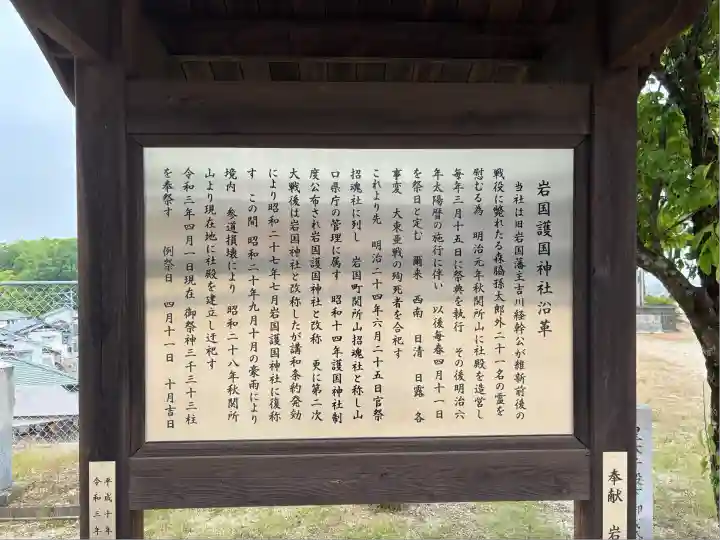 岩国護国神社沿革
当社は旧岩国藩主吉川経幹公が維新前後の
戦役に斃れたる森脇孫太郎外二十一名の霊を
慰むる為　明治元年秋関所山に社殿を造営し
毎年三月十五日に祭典を執行　その後明治六
年太陽暦の施行に伴い　以後毎春四月十一日
を祭日と定む　爾来　西南　日清　日露　各
事変　大東亜戦の殉死者を合祀す
これより先　明治二十四年六月二十五日官祭
招魂社に列し　岩国町関所山招魂社と称し山
口県庁の管理に属す　昭和十四年護国神社制
度公布され岩国護国神社と改称　更に第二次
大戦後は岩国神社と改称したが講和条約発効
により昭和二十七年七月岩国護国神社に復称
す　この間　昭和二十年九月十月の豪雨により
境内　参道損壊により　昭和二十八年秋関所
山より現在地に社殿を建立し迁祀す
令和三年四月一日現在　御祭神三千三十三柱
を奉祭す　例祭日　四月十一日　十月吉日
奉献　岩
平成十年
令和三年